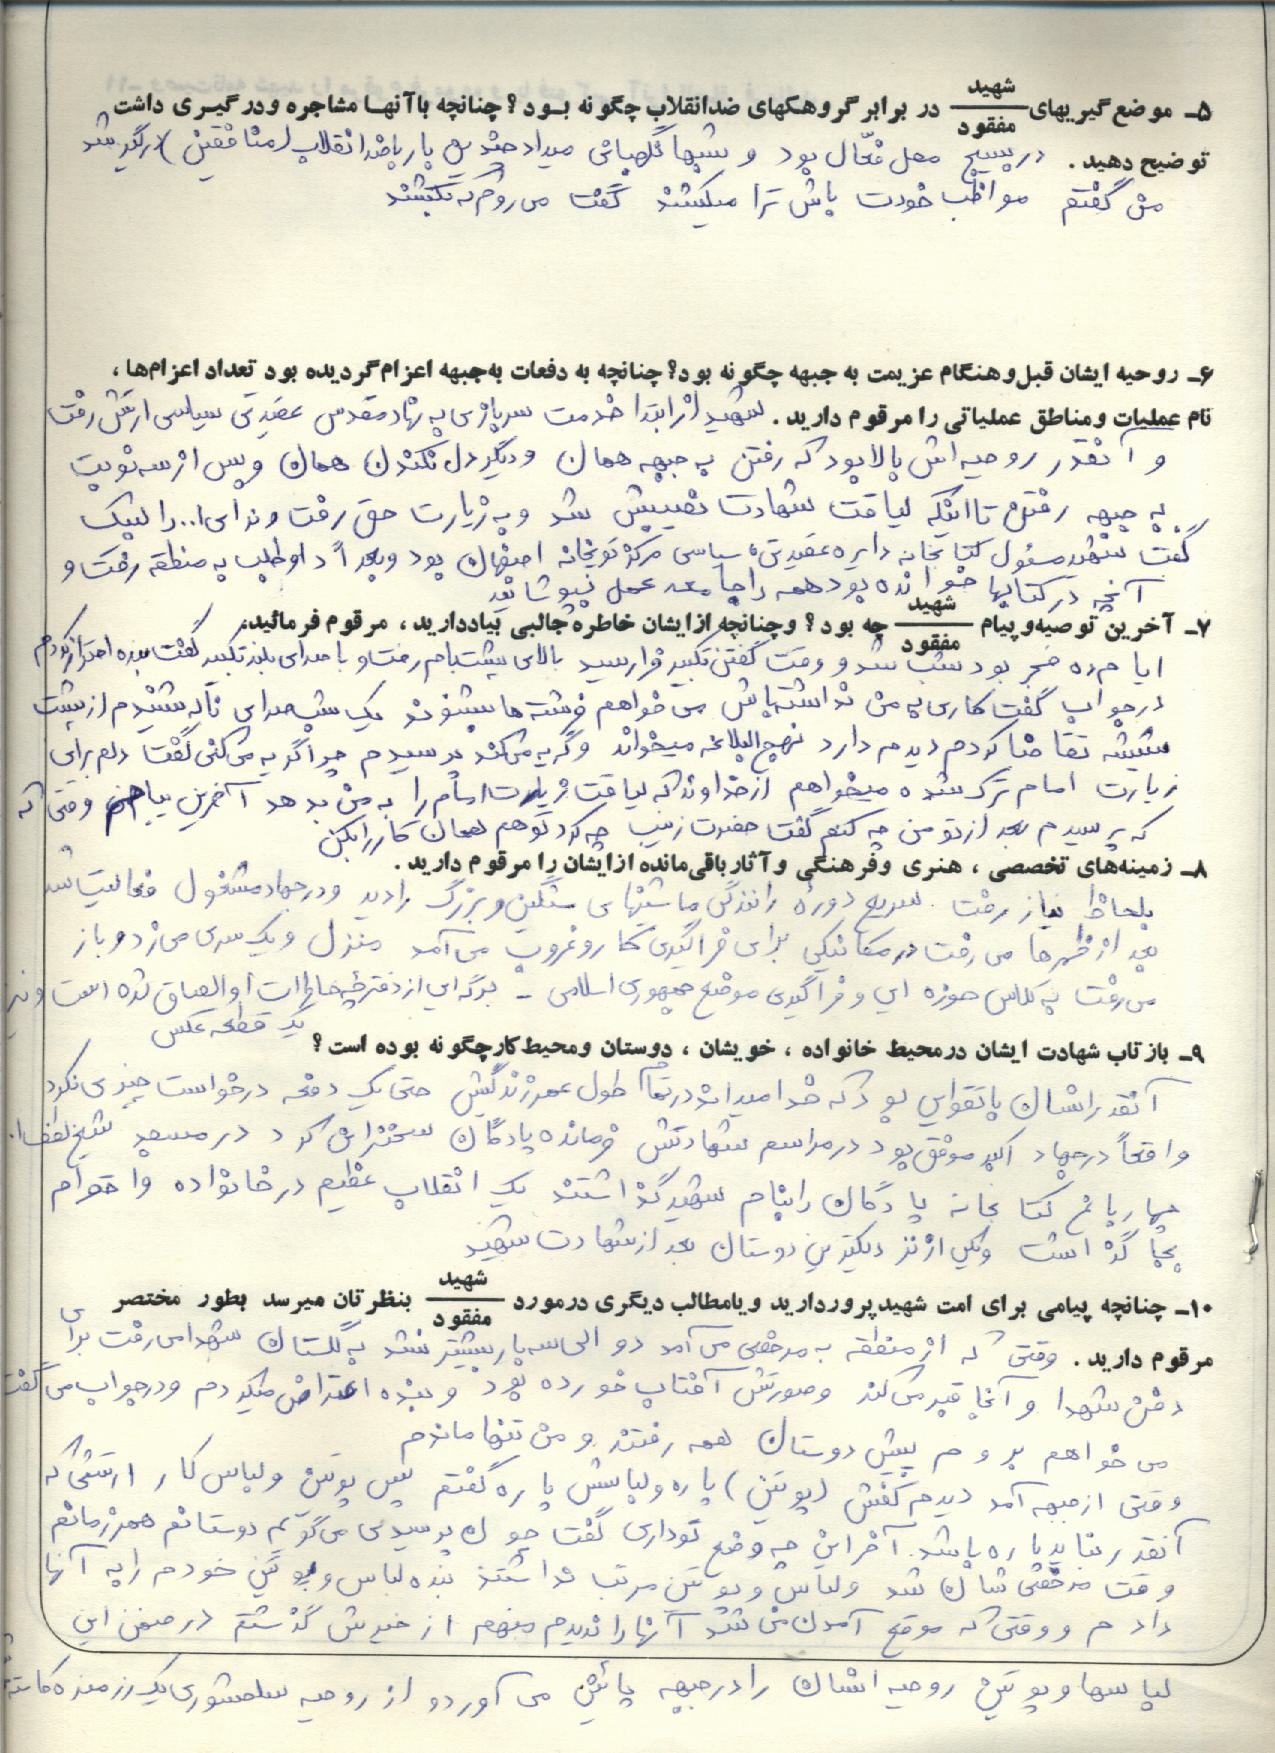 ۵ـ موضع‌گیریهای شهید/مفقود در برابر گروهکهای ضدانقلاب چگونه بود؟ چنانچه با آنها مشاجره و درگیری داشت
توضیح دهید. در بسیج محل فعّال بود و شبها نگهبانی میداد چندین بار با ضد انقلاب (منافقین) درگیر شد
من گفتم مواظب خودت باش ترا میکشند گفت می روم که نکشند
۶ـ روحیه ایشان قبل و هنگام عزیمت به جبهه چگونه بود؟ چنانچه به دفعات به جبهه اعزام گردیده بود تعداد اعزام‌ها،
نام عملیات و مناطق عملیاتی را مرقوم دارید. شهید از ابتدا خدمت سربازی به نهاد مقدس عقیدتی سیاسی ارتش رفت
و آنقدر روحیه اش بالا بود که رفتن به جبهه همان و دیگر دل نکندن همان و پس از سه نوبت
به جبهه رفتن تا اینکه لیاقت شهادت نصیبش شد و به زیارت حق رفت و ندای ا... را لبیک
گفت شهید مسئول کتابخانه دایره عقیدتی سیاسی مرکز توپخانه اصفهان بود و بعداً داوطلب به منطقه رفت و
آنچه در کتابها خوانده بود همه را جامعه عمل پوشاند
۷ـ آخرین توصیه و پیام شهید/مفقود چه بود؟ و چنانچه از ایشان خاطره جالبی بیاد دارید، مرقوم فرمائید.
ایام دهه فجر بود شب شد و وقت گفتن تکبیر فرا رسید بالای پشت بام رفت و با صدای بلند تکبیر گفت بنده اعتراض کردم
در جواب گفت کاری به من نداشته باش می خواهم فرشته ها بشنوند یک شب صدای ناله شنیدم از پشت
شیشه تقاضا کردم دیدم دارد نهج البلاغه میخواند و گریه می کند پرسیدم چرا گریه می کنی گفت دلم برای
زیارت امام ترک شده میخواهم از خداوند که لیاقت زیارت امام را به من بدهد آخرین پیامش وقتی که
که پرسیدم بعد از تو من چه کنم گفت حضرت زینب چه کرد تو هم همان کار را بکن
۸ـ زمینه‌های تخصصی، هنری و فرهنگی و آثار باقی‌مانده از ایشان را مرقوم دارید.
بلحاظ نیاز رفت سریع دورهٔ رانندگی ماشینهای سنگین و بزرگ را دید و در جهاد مشغول فعالیت شد
بعد از ظهرها می رفت در مکانیکی برای فراگیری کار و غروب می آمد منزل و یک سری می زد و باز
می رفت به کلاس حوزه ای و فراگیری مواضع جمهوری اسلامی ـ برگه ای از دفترچه خاطرات او الصاق شده است و نیز
یک قطعه عکس
۹ـ بازتاب شهادت ایشان در محیط خانواده، خویشان، دوستان و محیط کار چگونه بوده است؟
آنقدر ایشان با تقوای بود که خدا میداند در تمام طول عمر زندگیش حتی یک دفعه درخواست چیزی نکرد
واقعاً در جهاد اکبر موفق بود در مراسم شهادتش فرمانده پادگان سخنرانی کرد در مسجد شیخ لطف ا..
چهارباغ کتابخانه پادگان را بنام شهید گذاشتند یک انقلاب عظیم در خانواده و اقوام
بجا گذاشت و یکی از نزدیکترین دوستان بعد از شهادت شهید
۱۰ـ چنانچه پیامی برای امت شهیدپرور دارید و یا مطالب دیگری در مورد شهید/مفقود بنظرتان میرسد بطور مختصر
مرقوم دارید. وقتی که از منطقه به مرخصی می آمد دو الی سه بار بیشتر نشد به گلستان شهدا می رفت برای
دفن شهدا و آنجا قبر می کند و صورتش آفتاب خورده بود و بنده اعتراض میکردم و در جواب می گفت
می خواهم بروم پیش دوستان همه رفتند و من تنها ماندم
وقتی از جبهه آمد دیدم کفش (پوتین) پاره و لباسش پاره گفتم پس پوتین و لباس کار ارتشی که
آنقدر نباید پاره باشد. آخر این چه وضع تو داری گفت چون پرسیدی می گویم دوستانم همرزمانم
وقت مرخصی شان شد و لباس و پوتین مرتب نداشتند بنده لباس و پوتین خودم را به آنها
دادم و وقتی که موقع آمدن من شد آنها را ندیدم منهم از خیرش گذشتم در ضمن این
لباسها و پوتین روحیه ایشان را در جبهه پائین می آورد و از روحیه سلحشوری یک رزمنده کاسته